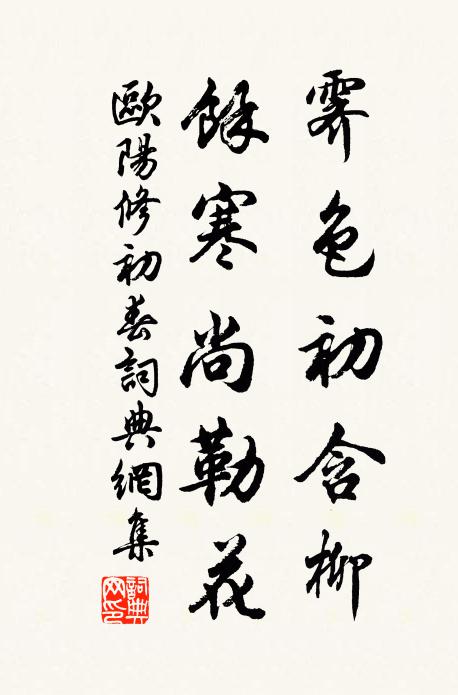 霽色初含柳
餘寒尚勒花
歐陽修初春詞典網集
詞典網印